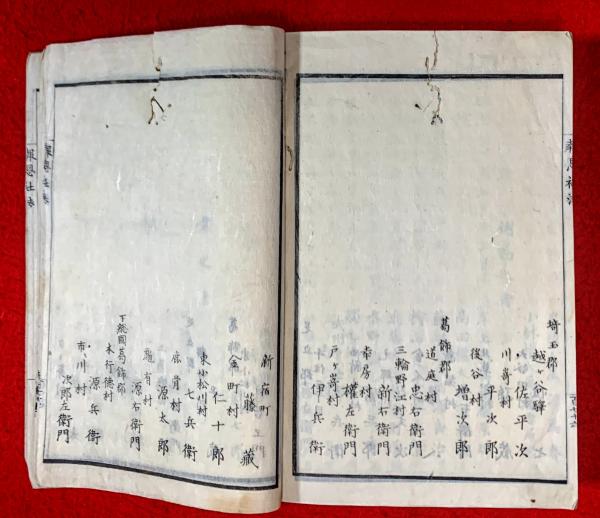 埼玉郡
越ヶ谷驛
佐平次
川嵜村
平次郎
後谷村
増次郎
葛飾郡
道庭村
忠右衛門
三輪野江村
新右衛門
幸房村
権左衛門
戸ヶ嵜村
伊兵衛
新宿町
藤蔵
金町村
仁十郎
東小松川村
七兵衛
鹿骨村
源太郎
亀有村
源右衛門
下総國葛飾郡
本行徳村
源兵衛
市川村
次郎左衛門
報恩社法